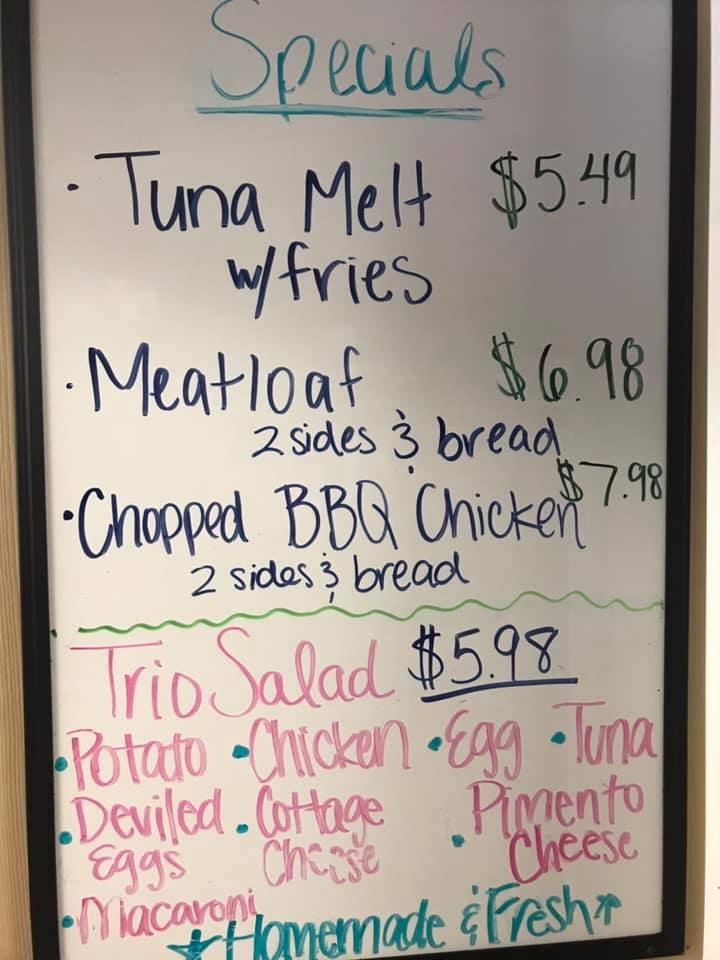 Specials
· Tuna Melt $5.49
w/fries
· Meatloaf $6.98
2 sides & bread
· Chopped BBQ Chicken $7.98
2 sides & bread
Trio Salad $5.98
• Potato • Chicken • Egg • Tuna
• Deviled Eggs • Cottage Cheese • Pimento Cheese
• Macaroni
Homemade & Fresh